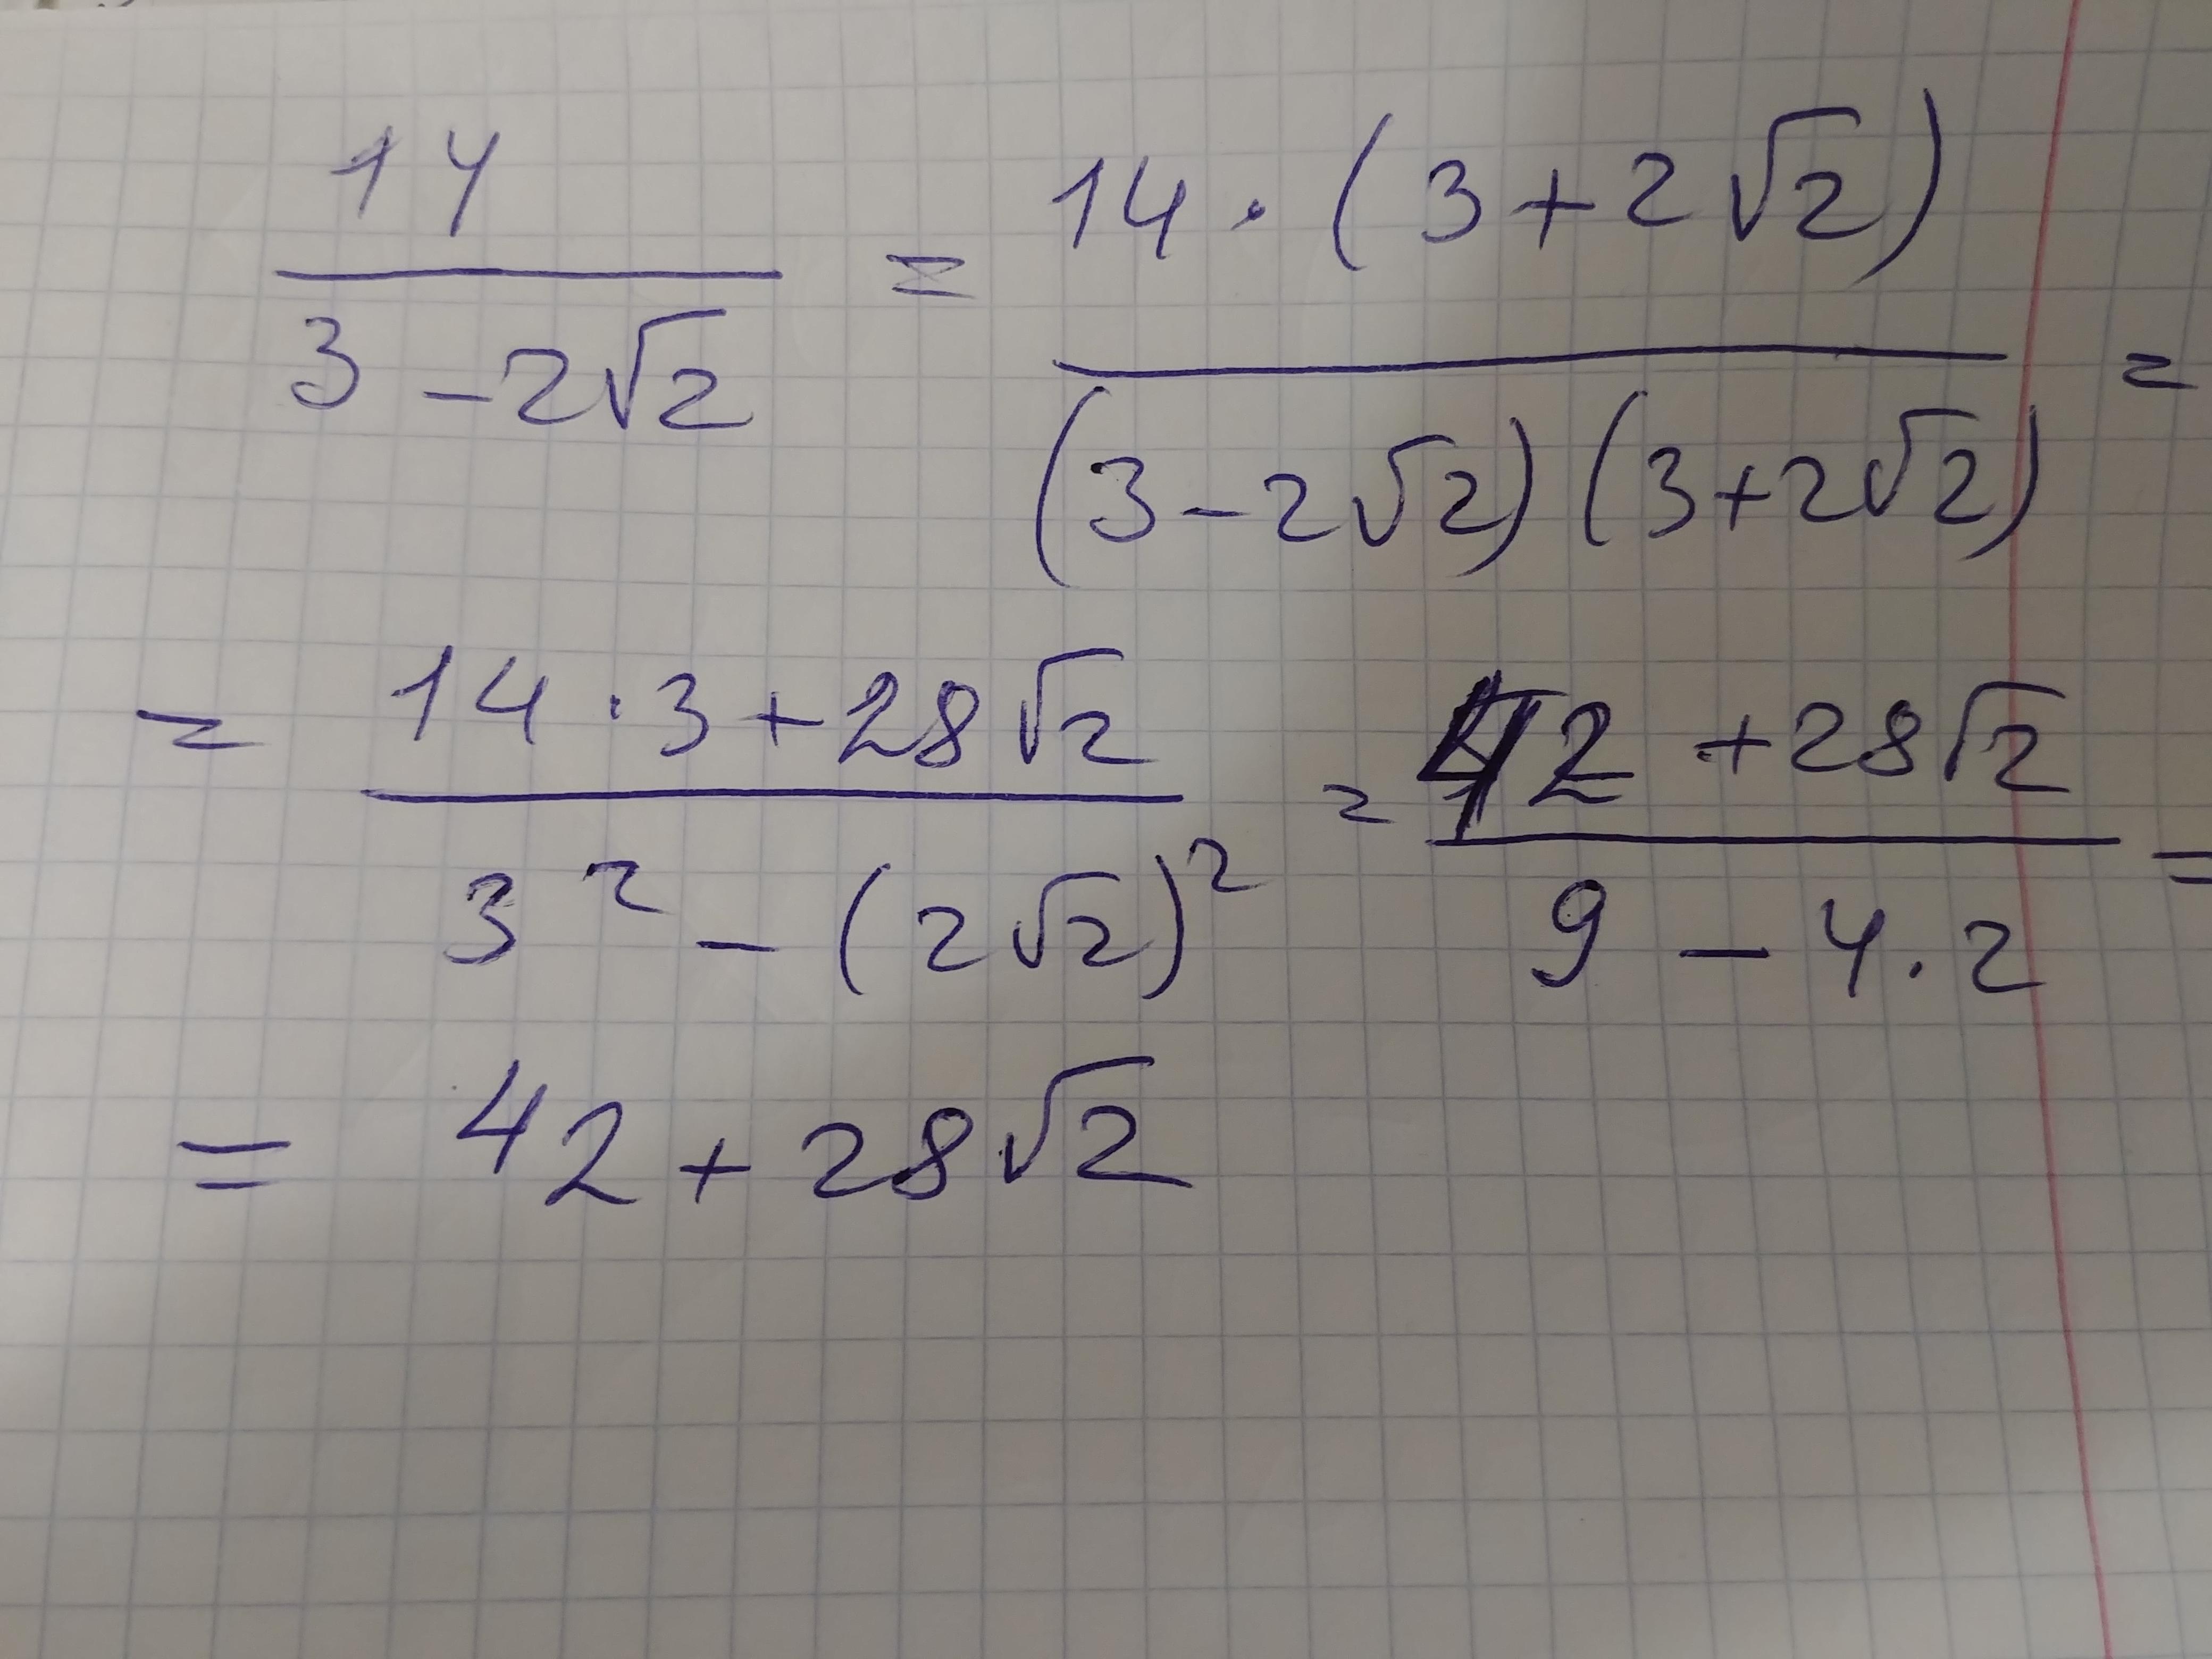 14/(3 - 2√2) = 14 · (3 + 2√2)/((3 - 2√2)(3 + 2√2)) =
= (14 · 3 + 28√2)/(3² - (2√2)²) = (42 + 28√2)/(9 - 4 · 2) =
= 42 + 28√2